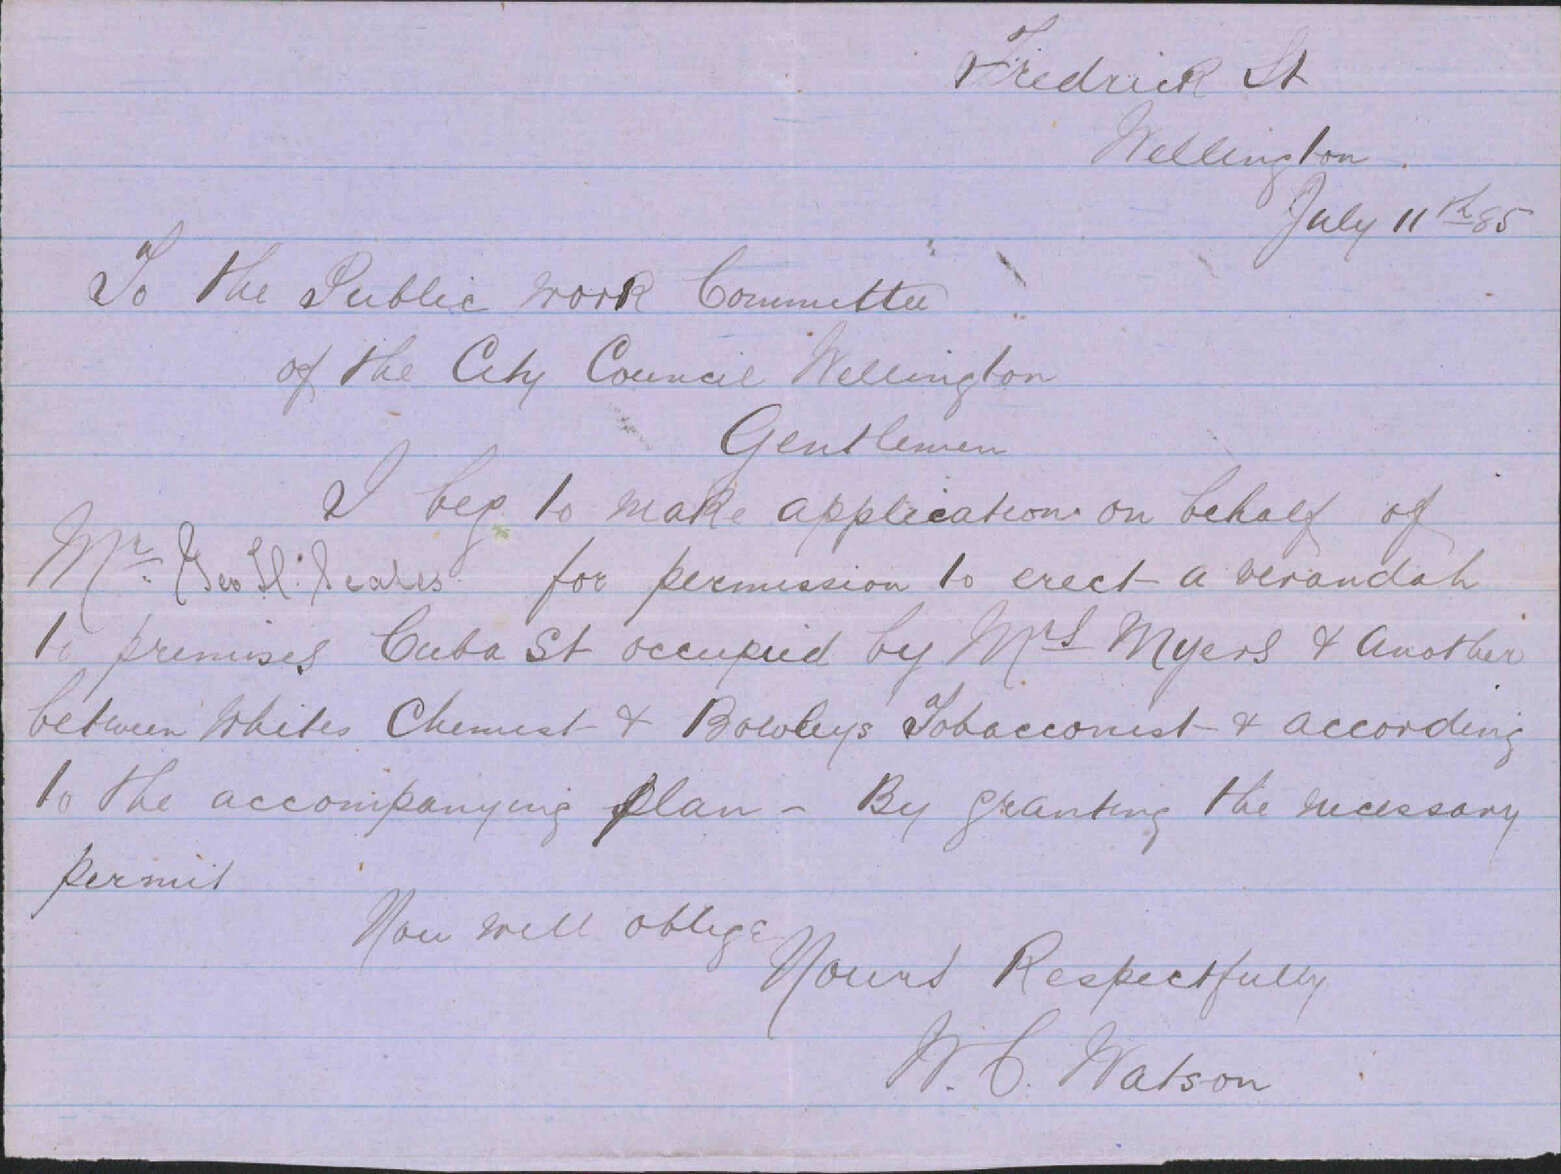 Fredrick St
Wellington
July 11th 85
To the Public work Committee
of the City Council Wellington
Gentlemen
I beg to make application on behalf of
Mr. Geo H. Scales for permission to erect a verandah
to premises Cuba St occupied by Mrs Myers & Another
between Whites Chemist & Bowleys Tobacconist & according
to the accompanying plan - By granting the necessary
permit
You will oblige
Yours Respectfully
W. C. Watson